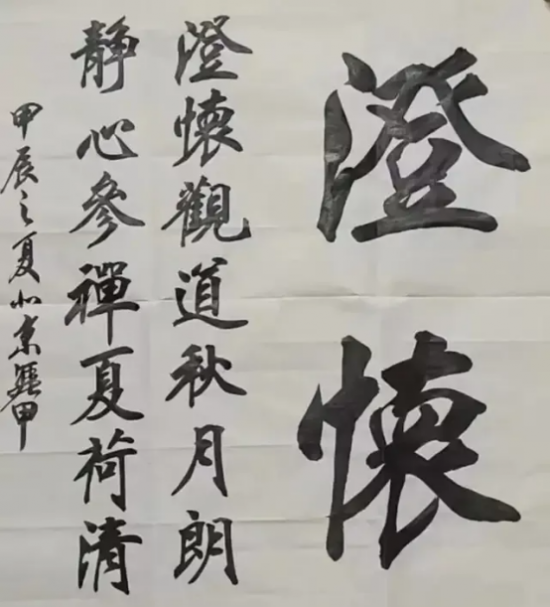 澄懷
澄懷觀道秋月朗
靜心參禪夏荷清
甲辰之夏小京
甲